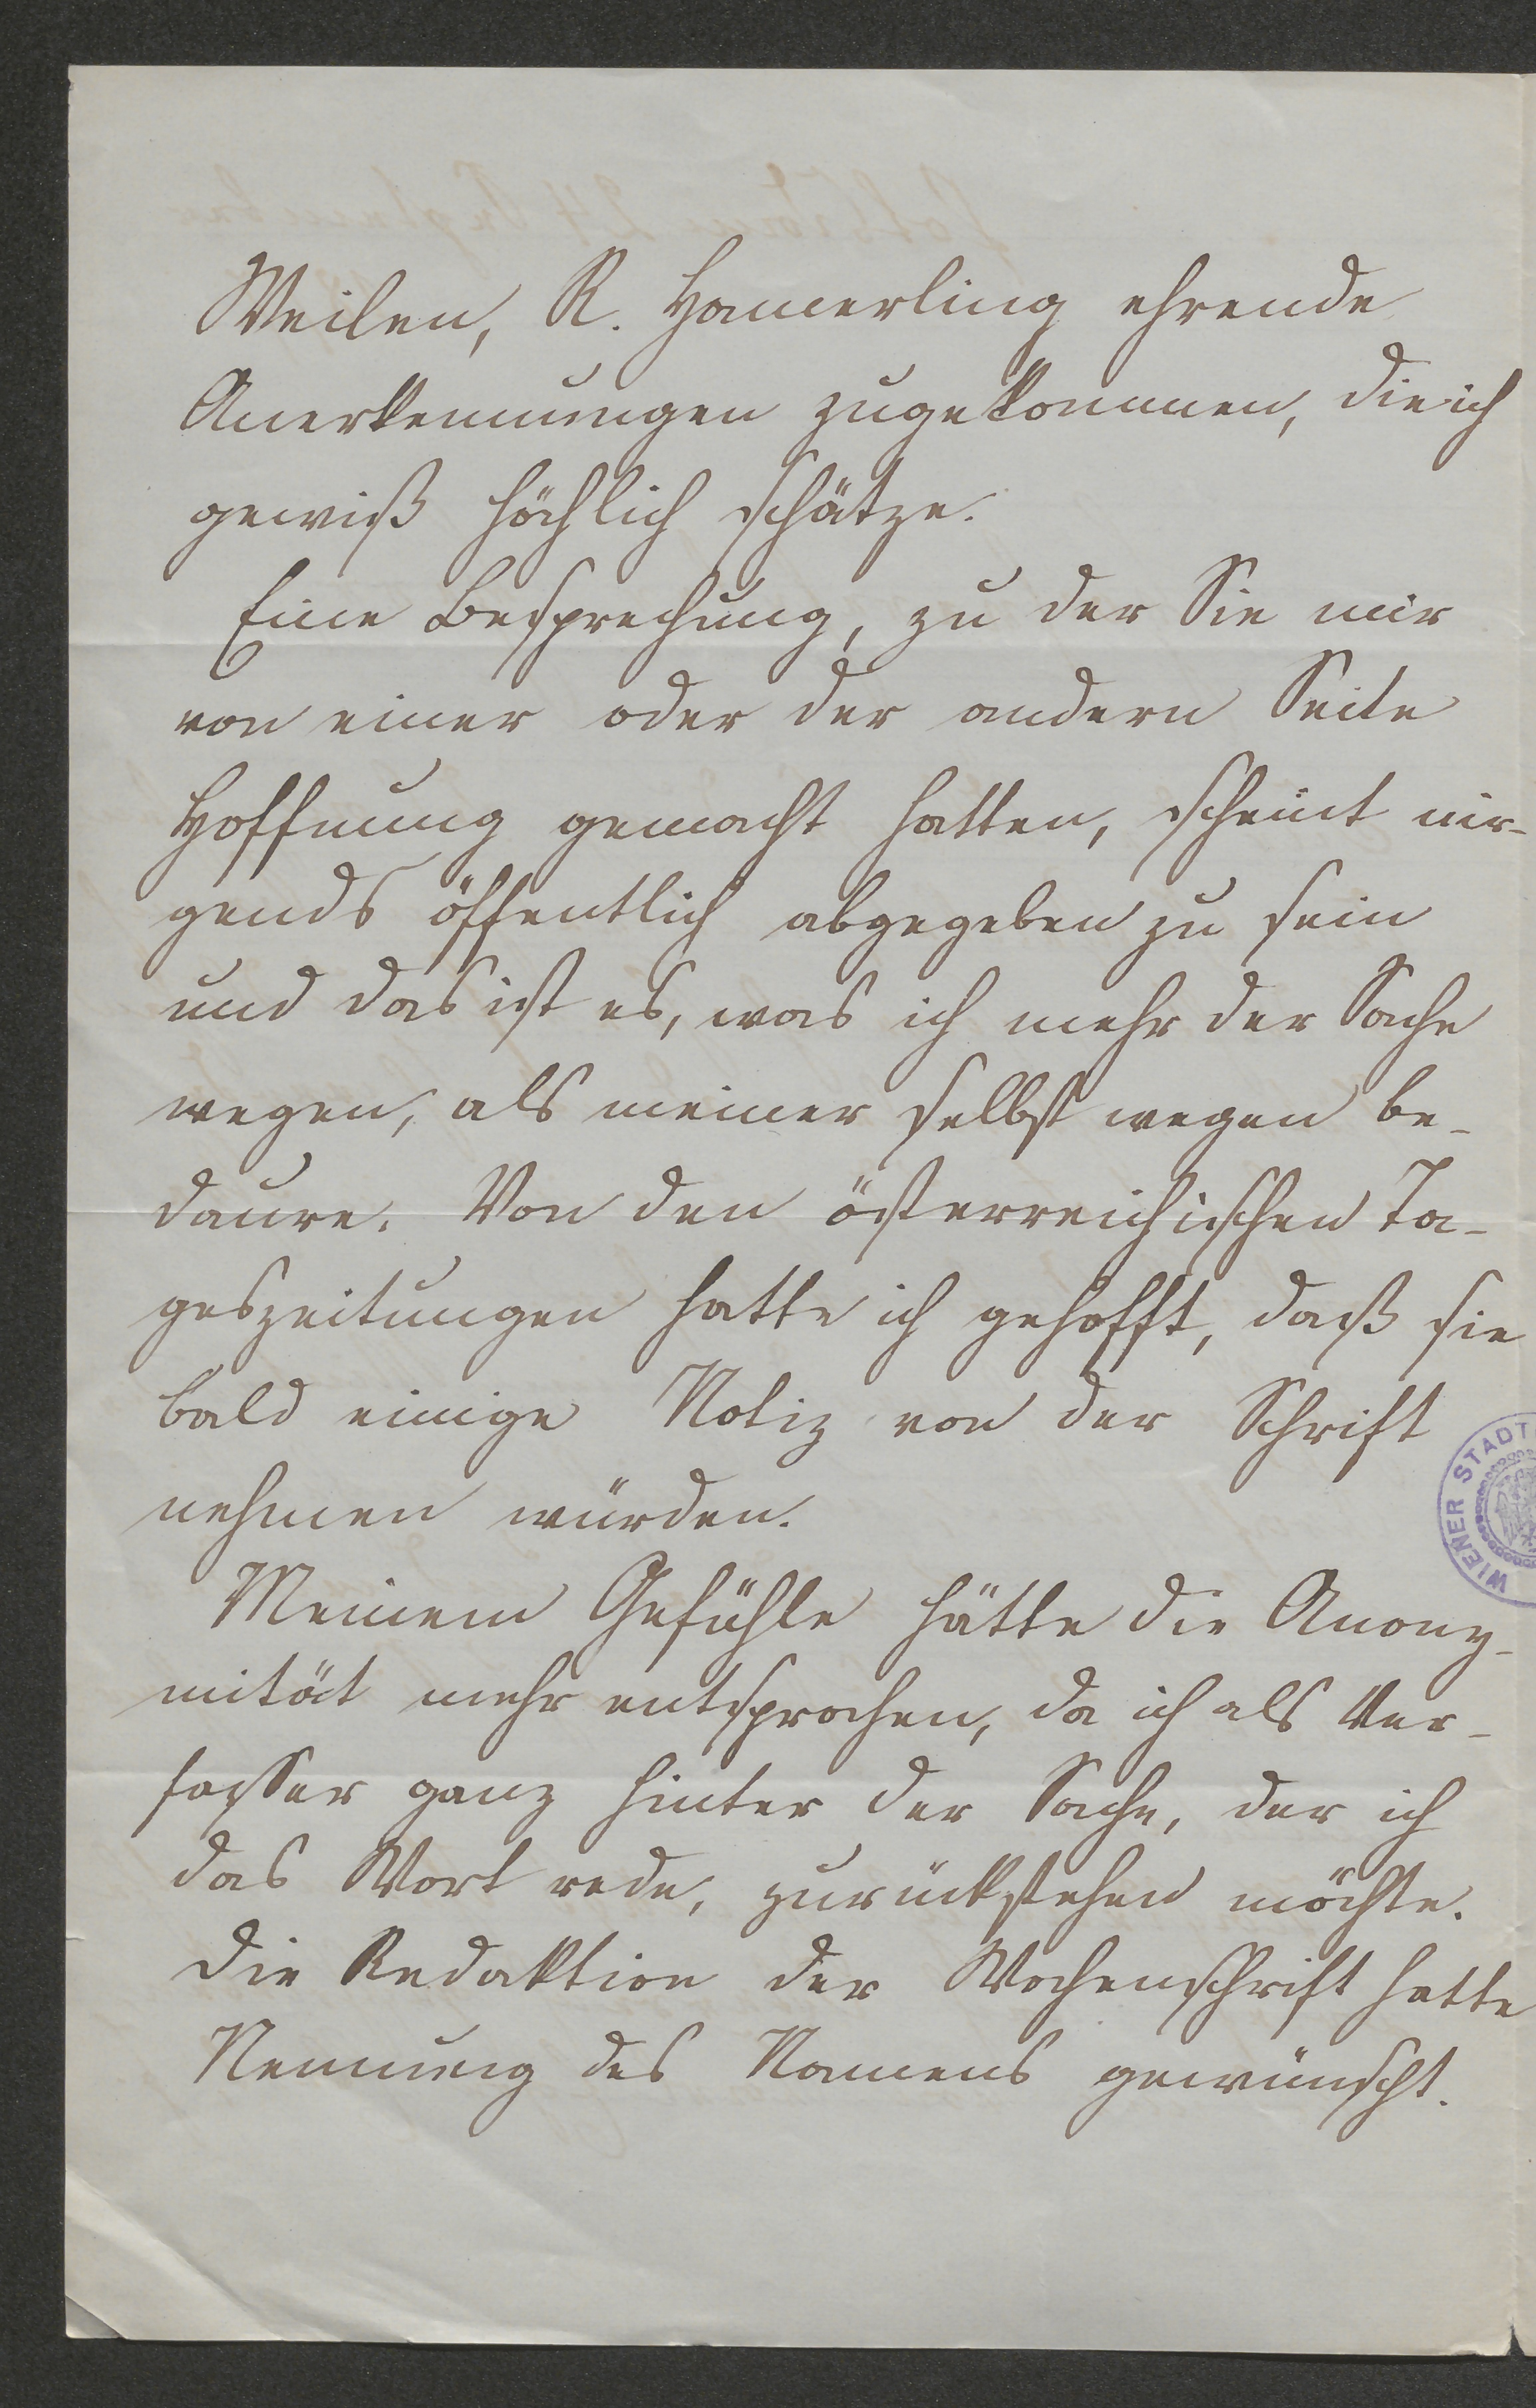 Weilen, R. Hamerling ehrende
Anerkennungen zugekommen, die ich
gewiß höchlich schätze.
Eine Besprechung, zu der Sie mir
von einer oder der andern Seite
Hoffnung gemacht hatten, scheint nir-
gends öffentlich abgegeben zu sein
und das ist es, was ich mehr der Sache
wegen, als meiner selbst wegen be-
daure. Von den österreichischen Ta-
geszeitungen hatte ich gehofft, daß sie
bald einige Notiz von der Schrift
nehmen würden.
Meinem Gefühle hätte die Anony-
mität mehr entsprochen, da ich als Ver-
fasser ganz hinter der Sache, der ich
das Wort rede, zurückstehen möchte.
Die Redaktion der Wochenschrift hatte
Nennung des Namens gewünscht.
WIENER STADT